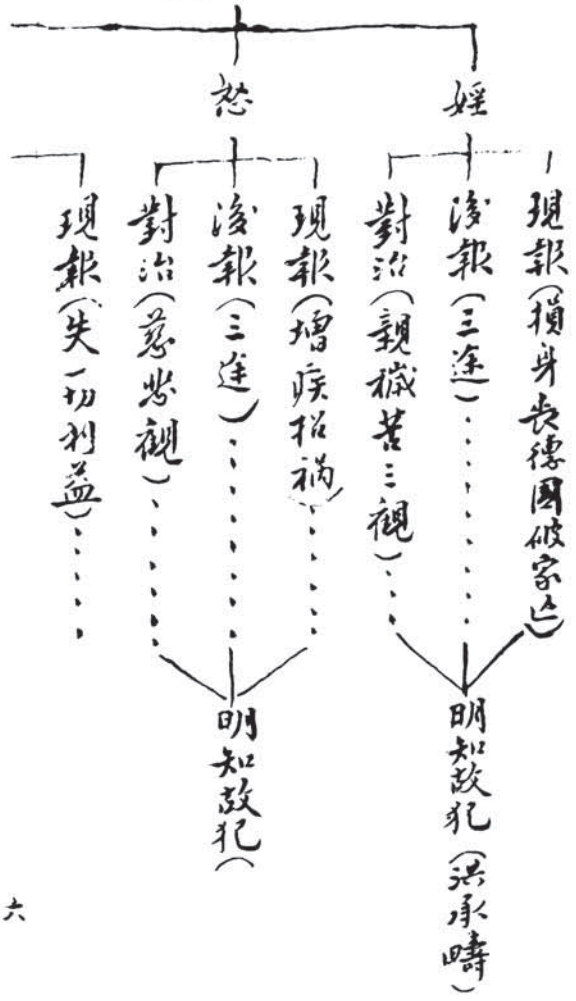 婬
現報(損身喪德國破家亡)
後報(三途)
對治(親穢苦三觀)
明知故犯(洪承疇)
怒
現報(增疾招禍)
後報(三途)
對治(慈悲觀)
明知故犯(
現報(失一切利益)
六